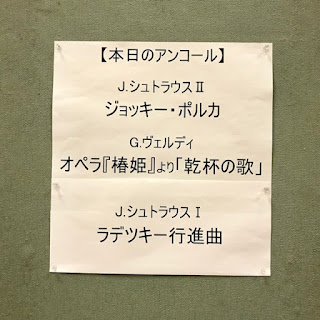 【本日のアンコール】
J.シュトラウスⅡ
ジョッキー・ポルカ
G.ヴェルディ
オペラ『椿姫』より「乾杯の歌」
J.シュトラウスⅠ
ラデツキー行進曲